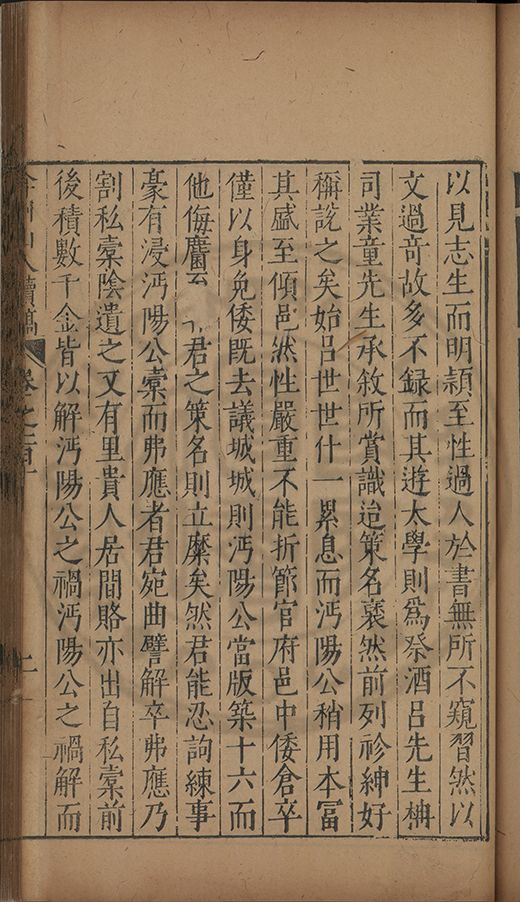 以見志生而明頴至性過人於書無所不窺習然以
文過奇故多不録而其遊太學則爲祭酒呂先生柟
司業童先生承敘所賞識迨策名裦然前列袗紳好
稱說之矣始呂世世什一累息而沔陽公稍用本冨
其盛至傾邑然性嚴重不能折節官府邑中倭倉卒
僅以身免倭既去議城城則沔陽公當版築十六而
他侮 君之策名則立糜矣然君能忍詢練事
豪有浸沔陽公橐而弗應者君宛曲譬解卒弗應乃
割私橐陰遺之又有里貴人居間賂亦出自私橐前
後積數千金皆以解沔陽公之禍沔陽公之禍解而
人續稿 卷之